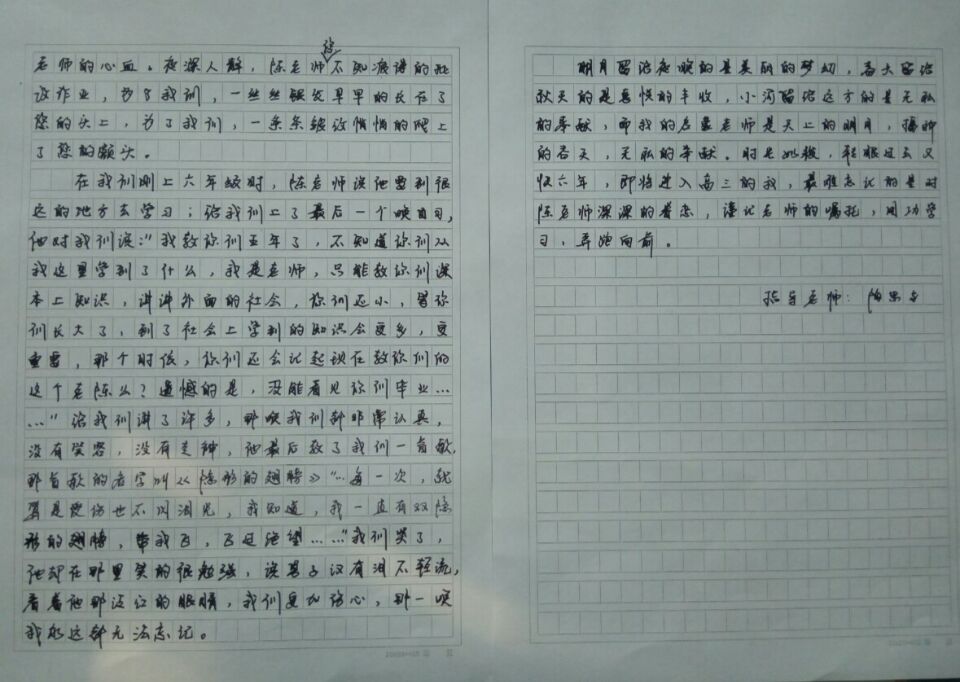 您
老师的心血。夜深人静，陈老师不知疲倦的批
改作业，为了我们，一丝丝银发早早的长在了
您的头上，为了我们，一条条皱纹悄悄的爬上
了您的额头。
在我们刚上六年级时，陈老师说他要到很
远的地方去学习；给我们上了最后一个晚自习，
他对我们说："我教你们五年了，不知道你们从
我这里学到了什么，我是老师，只能教你们课
本上知识，讲讲外面的社会，你们还小，等你
们长大了，到了社会上学到的知识会更多，更
重要，那个时候，你们还会记起现在教你们的
这个老陈么？遗憾的是，没能看见你们毕业…
…"给我们讲了许多，那晚我们都非常认真，
没有笑容，没有走神，他最后教了我们一首歌，
那首歌的名字叫《隐形的翅膀》"…每一次，就
算是受伤也不闪泪光，我知道，我一直有双隐
形的翅膀，带我飞，飞过绝望……"我们哭了，
他却在那里笑的很勉强，说男子汉有泪不轻流，
看着他那泛红的眼睛，我们更加伤心，那一晚
我永远都无法忘记。
明月留给夜晚的是美丽的梦幻，春天留给
秋天的是喜悦的丰收，小河留给远方的是无私
的奉献，而我的启蒙老师是天上的明月，播种
的春天，无私的奉献。时光如梭，转眼过去又
快六年，即将进入高三的我，最难忘记的是对
陈老师深深的眷恋，谨记老师的嘱托，用功学
习，奔跑向前。
指导老师：